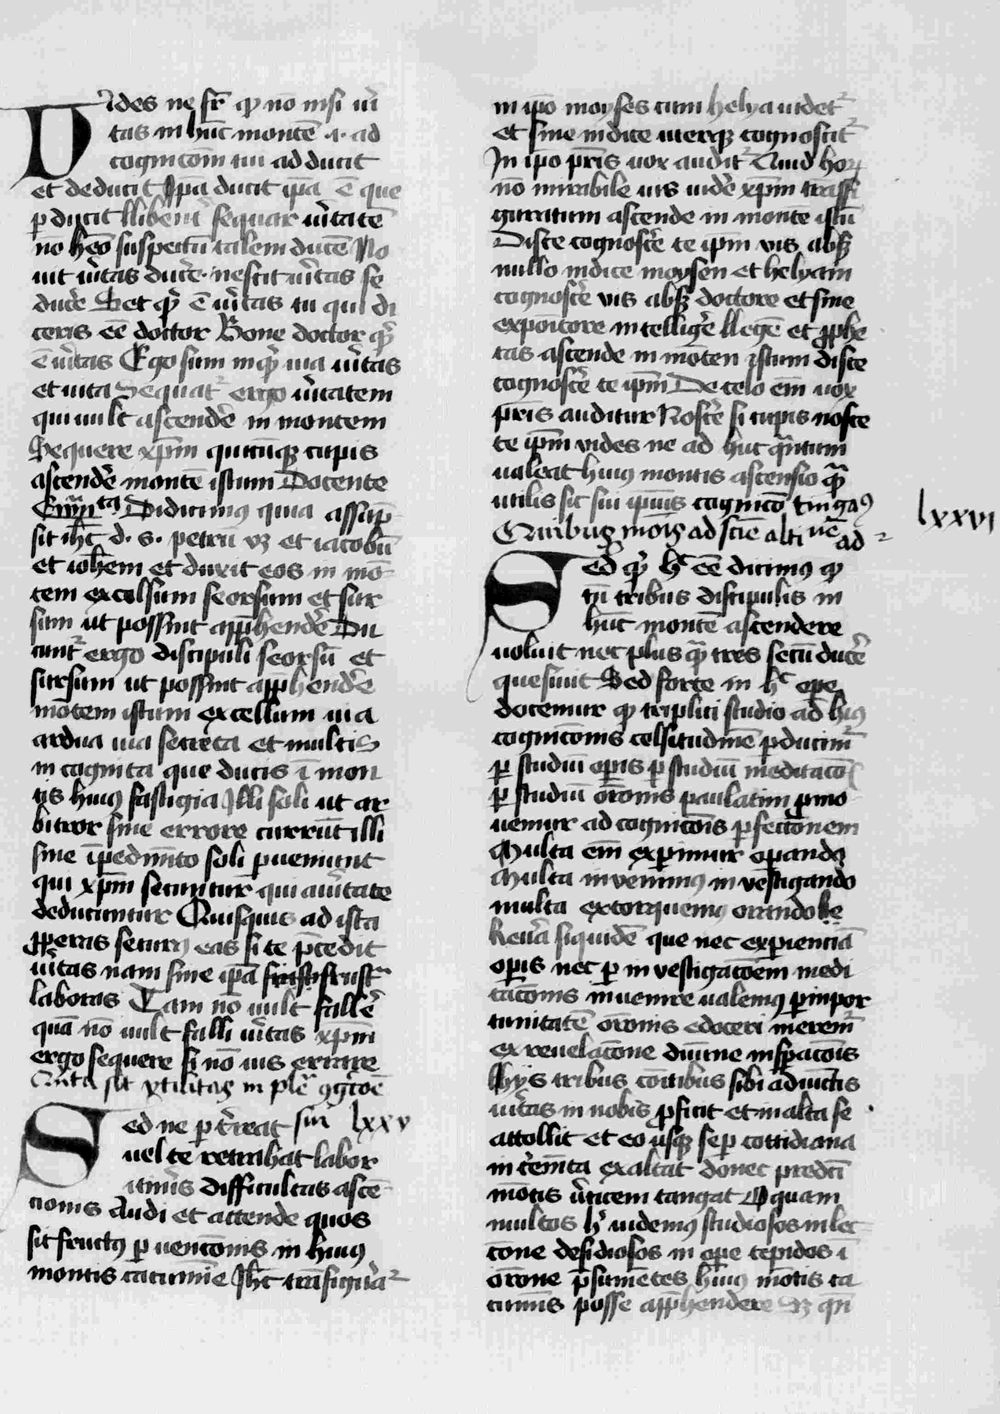 Uides ne fr̄ qͥ nō nisi v̄i
tas in hūc montē .i. ad
cognicōm sui adducit
et deducit Ip̄a ducit ip̄a ē que
ꝑducit llibent̄ sequar v̄itatē
nō heō suspectū talem ducē No
uit v̄itas ducēr· nescit v̄itas se
ducēr Set qͥ ē v̄itas tu qui di
ceris eē doctor Bone doctor qͥ
ē v̄itas Ego sum inqͥ uia v̄itas
et uita Sequat᷑ ergo v̄itatem
qui uult ascendēr in montem
Sequere xp̄m quicūqꝫ cupis
ascendēr montē istum Docente
Didicimus quia assūp
sit ih̄c d. s. petrū vꝫ et iacobū
et ioh̄em et duxit eos in mō
tem excelsum seorsum et sur
sum ut possint app̄hendēr Du
cunt᷑ ergo discipuli seorsū et
sursum ut possint app̄hendēr
mōtem istum excelsum uia
ardua uia secreta et multis
in cognita que ducis ī mon
tis huiꝰ fastigia Illi soli ut ar
bitror sine errore currūt illi
sine īpedimto soli ꝑueniunt
qui xp̄m secuntur qui a v̄itate
deducuntur Quisquis ad ista
ꝓperas securꝰ eas si te p̄cedit
v̄itas nam sine ip̄a frustra
laboras Tam nō uult fallēr
quā nō uult falli v̄itas xp̄m
ergo sequere si nō uis errare
sit vtilitas in
Sed ne ꝑt̄reat lxxv
uel te retrahat labor
itin̄is difficultas ascē
cionis Audi et attende quos
sit fructꝰ ꝑuencōnis in huiꝰ
montis cacumīe Ih̄c trāsigura᷑
in ip̄o moyses cum helya uidet᷑
et sine indice uterqꝫ cognoscit᷑
In ip̄o pr̄is uox audit᷑ Quid hoꝝ
nō mirabile uis uidēr xp̄m trāssi
guratum ascende in monte istū
Disce cognoscēr te ip̄m vis absqꝫ
nullo indice moysen et helyam
cognoscēr vis absqꝫ doctore et sine
expoītore intelligēr llegē et ꝓphe
tas ascende in mōten istum disce
cognoscēr te ip̄m De celo em̄ uox
pr̄is auditur Noscēr si cupis nosce
te ip̄m uides ne ad huc qͣntum
ualeat huiꝰ montis ascensio qͣ
utilis sit sui ipiꝰ cognicō
Quibus ad
lxxvi
Sed qͥ hͦ eē dicimus qͥ
cū tribus discipulis in
hūc montē ascendere
voluit nec plus qͣ tres secū ducēr
quesiuit Sed forte in hͦ ope
docemur qͥ triplici studio ad huiꝰ
cognicōnis celsitudinē ꝑducim᷑
ꝑ studiū oꝑis ꝑ studiū meditacō
ꝑ studiū orōnis paulatim ꝓmo
uemur ad cognicōis ꝑfectōnem
Multa em̄ experimur oꝑando
Multa inuenimꝰ inuestigando
multa extorquemꝰ orando
siquidē que nec expienciā
oꝑis nec ꝑ inuestigacōem medi
tacōnis inuenire ualemꝰ ꝑ inpor
tunitatē orōnis edoceri mēremr̄
ex reuelacōne diuine inspacōis
Hys tribus sibi adiunctis
v̄itas in nobis ꝓficit et multa se
attollit et eo usqꝫ seꝑ cottidiana
in crem̄ta exaltat donec predcī
mōtis v̄ticem tangat O quam
multos hͦ uidemꝰ studiosos in lec
cōne desidiosos in oꝑe tepidos ī
orōne p̄sumētes huiꝰ mōtis ca
cumīs posse app̄hendere Sꝫ qn̄